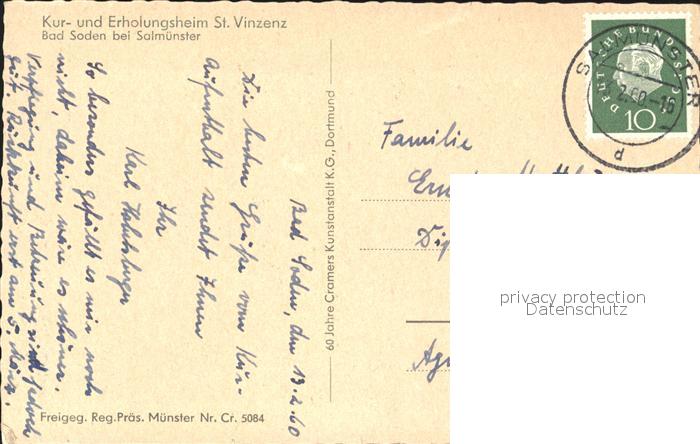 Kur- und Erholungsheim St. Vinzenz
Bad Soden bei Salmünster
Bad Soden, den 13.2.60
Die besten Grüße vom Kur-
Aufenthalt sendet Ihnen
Ihr
Karl
So besonders gefällt es mir noch
nicht, daheim wäre es schöner.
Verpflegung und Betreuung sind jedoch
gut. Rückkunft erst am 5. März.
Freigeg. Reg.Präs. Münster Nr. Cr. 5084
60 Jahre Cramers Kunstanstalt K.G., Dortmund
DEUTSCHE BUNDESPOST
10
SALMÜNSTER
2.60-16
Familie
privacy protection
Datenschutz